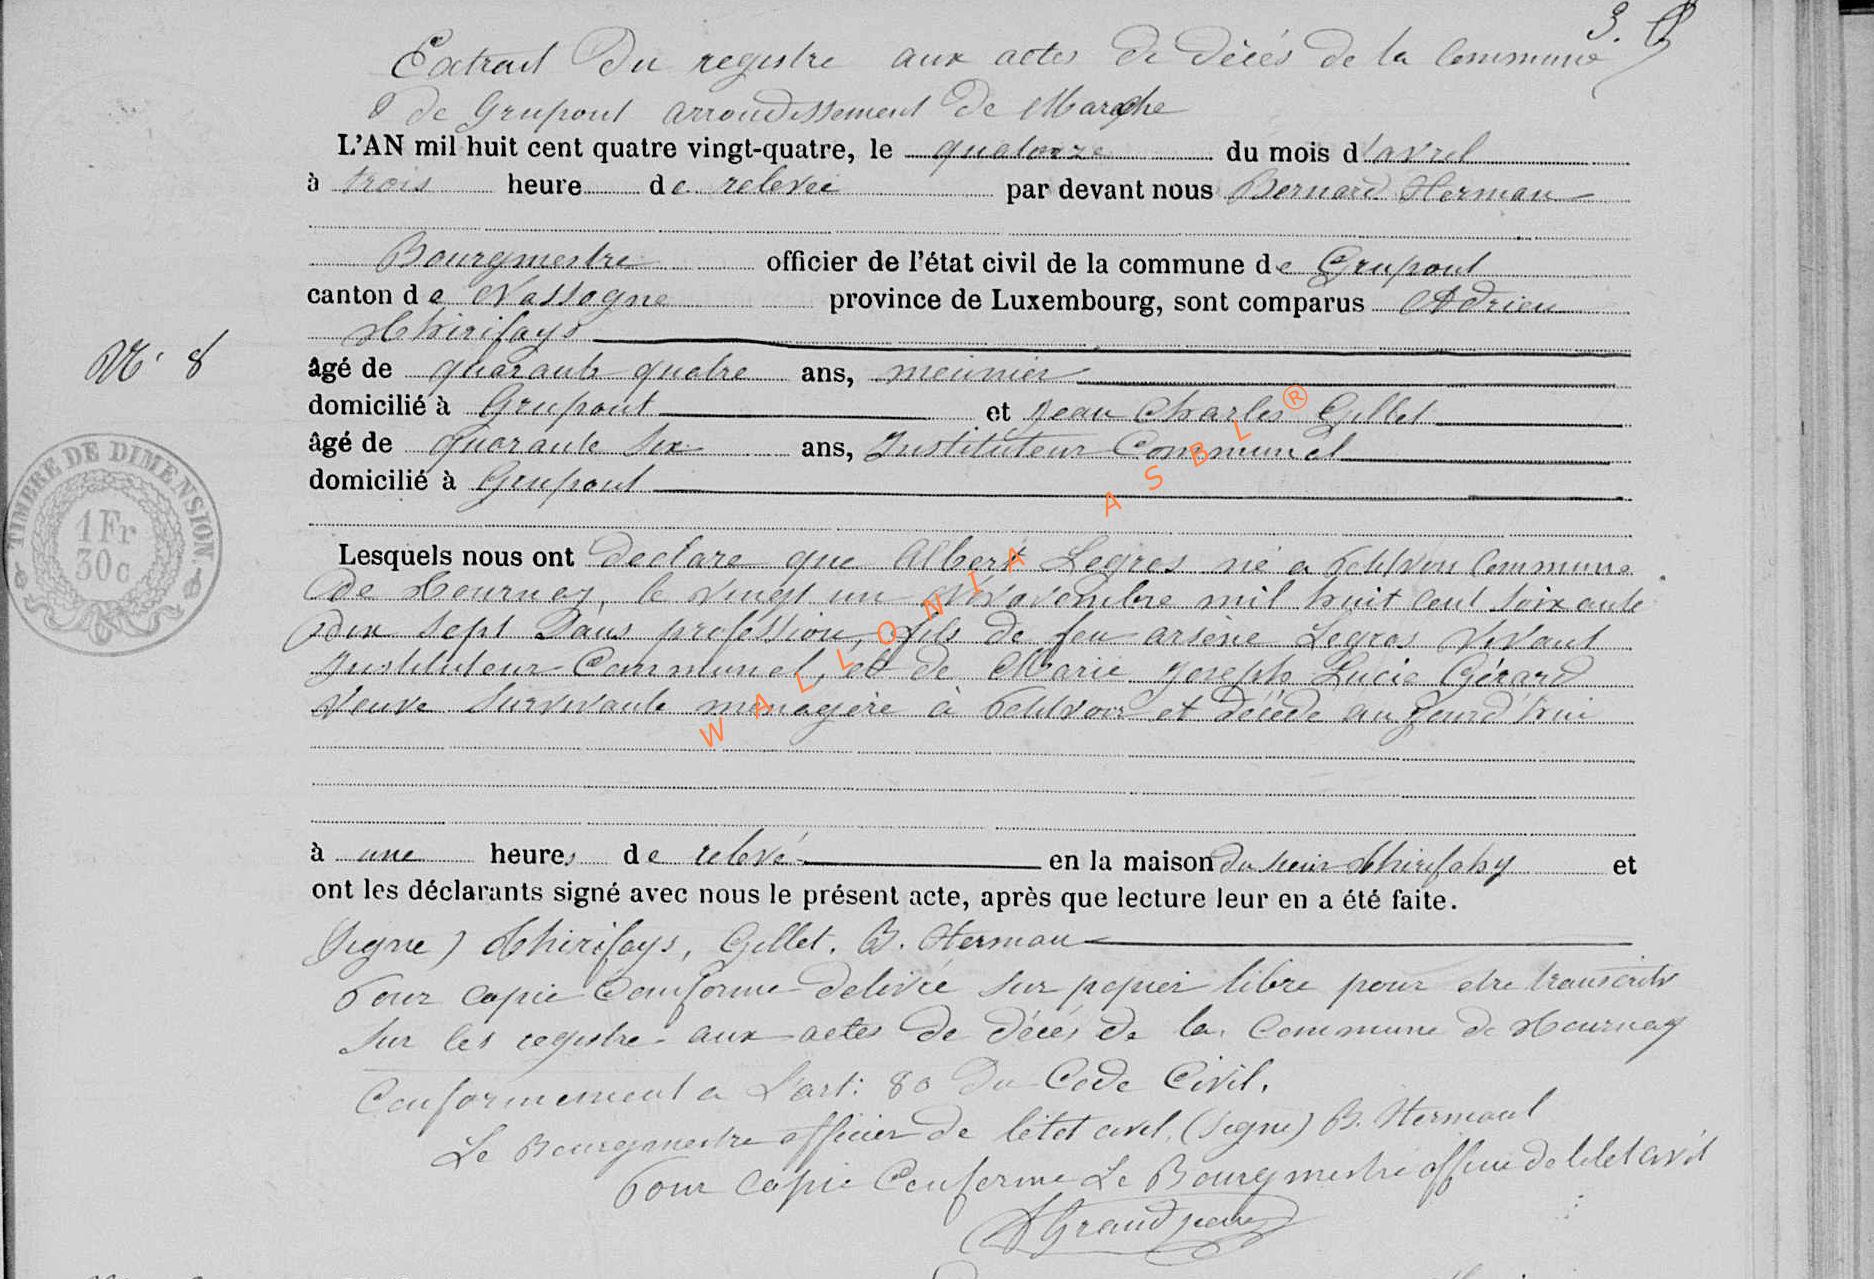 3.
Extrait du registre aux actes de décés de la Commune
de Grupont arrondissement de Marche
L'AN mil huit cent quatre vingt-quatre, le quatorze du mois d'avril
à trois heure de relevée par devant nous Bernard Herman
Bourgmestre officier de l'état civil de la commune de Grupont
canton de Nassogne province de Luxembourg, sont comparus Adrien
Thirifays
N° 8
âgé de quarante quatre ans, meunier
domicilié à Grupont et Jean Charles Gillet
âgé de quarante six ans, Instituteur Communal
domicilié à Grupont
TIMBRE DE DIMENSION.
1 Fr
30 c
Lesquels nous ont declare que Albert Legros né a Petitvoir Commune
de Tournay, le vingt un Novembre mil huit cent soixante
dix sept sans profession, fils de feu arsène Legros vivant
Instituteur Communal, et de Marie Joseph Lucie Gérard
veuve survivante menagère à Petitvoir et décédé aujourd'hui
WALLONIA ASBL ®
à une heures de relevé en la maison du sieur Thirifahy et
ont les déclarants signé avec nous le présent acte, après que lecture leur en a été faite.
(Signe) Thirifays, Gillet. B. Herman
Pour copie Conforme delivré sur papier libre pour etre transcrite
sur les registre aux actes de décés de la Commune de Tournay
Conformement a L'art: 80 du Code Civil.
Le Bourgmestre officier de l'etat civil. (Signe) B. Hermant
Pour copie Conforme Le Bourgmestre officie de l'etat civil
Grandjean